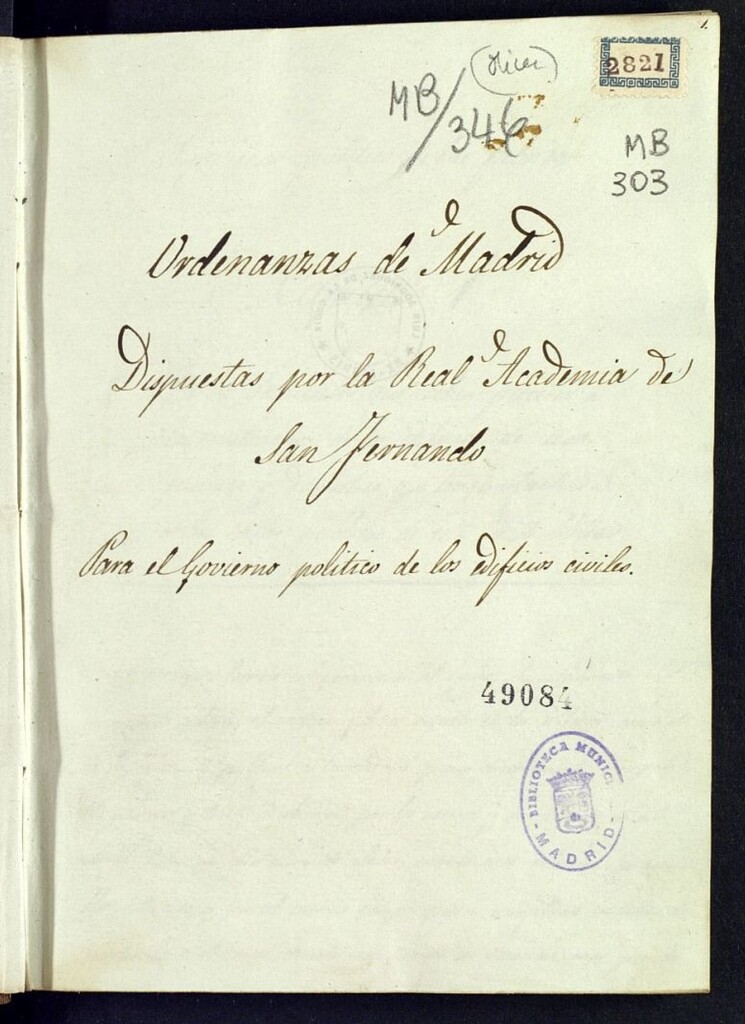 1.
2821
MB/346
MB
303
Ordenanzas de Madrid
Dispuestas por la Real Academia de
San Fernando
Para el Govierno politico de los edificios civiles.
49084
BIBLIOTECA MUNICI
MADRID